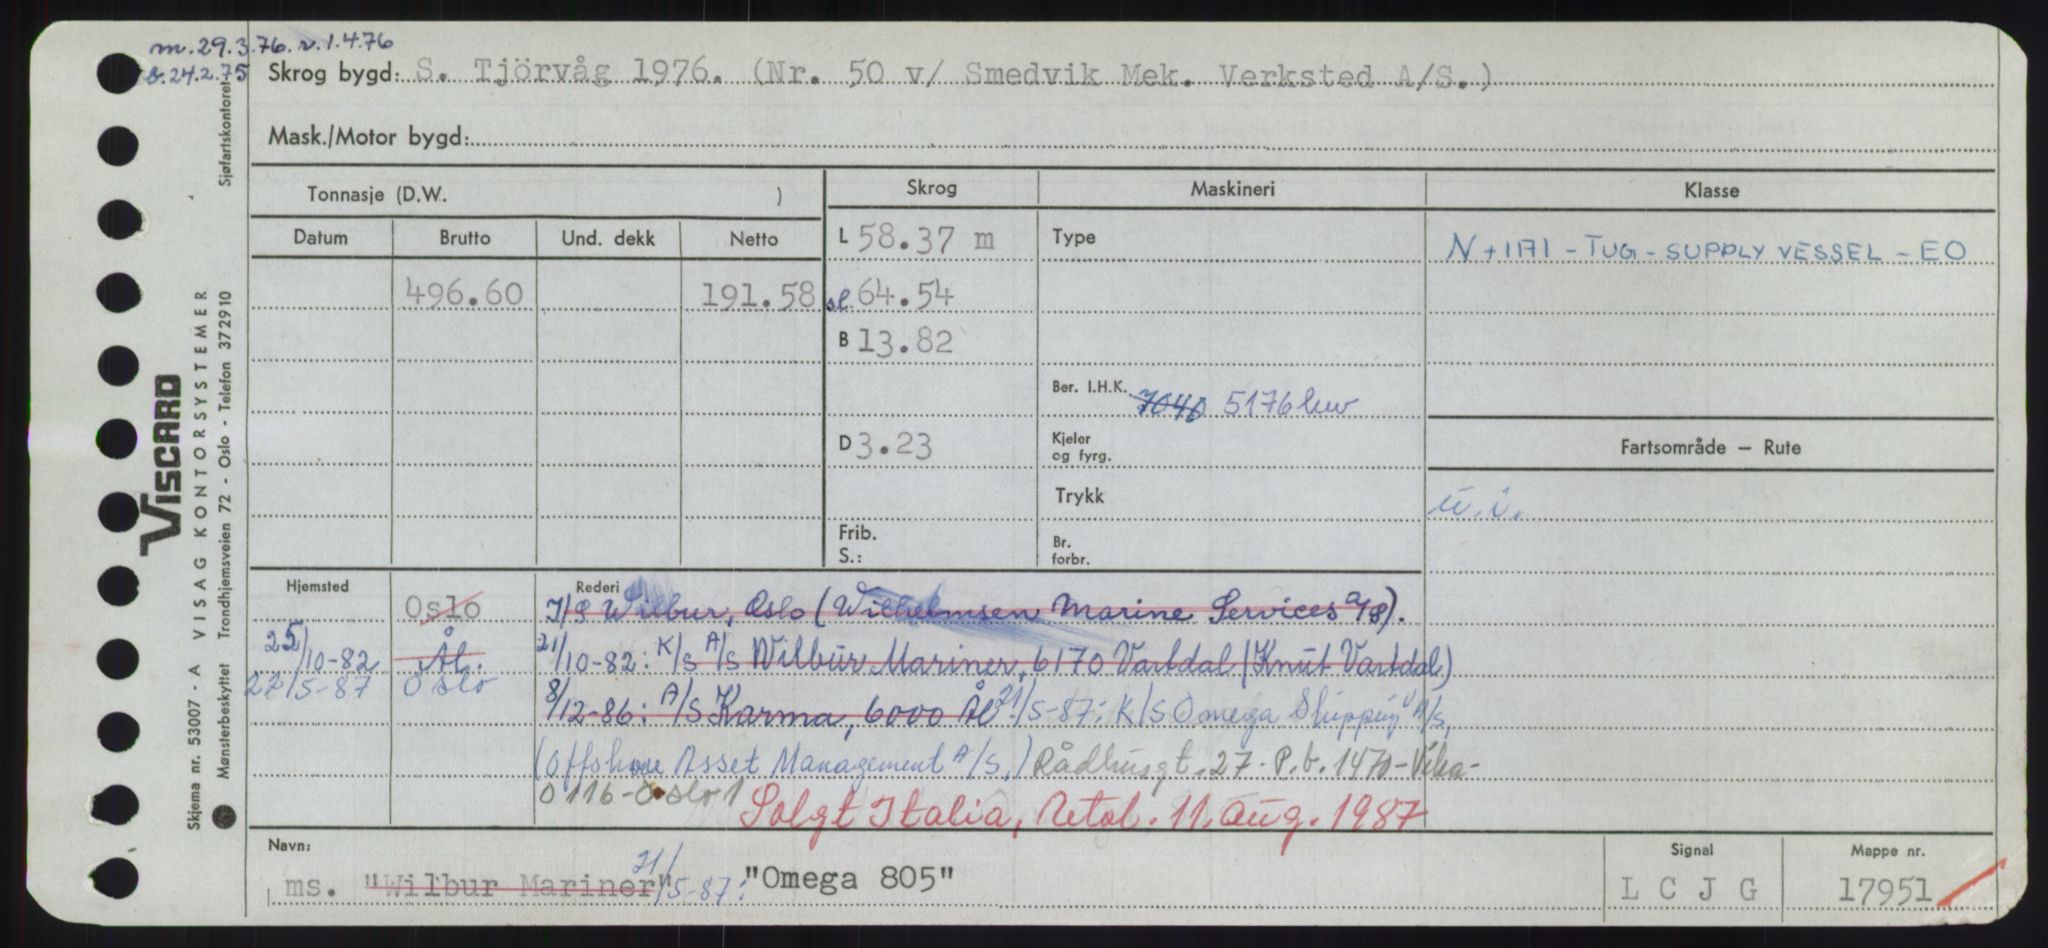 m. 29.3.76. r. 1.4.76
b. 24.2.75
Skrog bygd: S. Tjörvåg 1976. (Nr. 50 v/ Smedvik Mek. Verksted A/S.)
Mask./Motor bygd:
Sjøfartskontoret
Tonnasje (D.W. )
Skrog
Maskineri
Klasse
Datum Brutto Und. dekk Netto
L 58.37 m
Type
N + 1A1 - TUG - SUPPLY VESSEL - EO
496.60 191.58
sl. 64.54
B 13.82
Ber. I.H.K. 7040 5176 kw
D 3.23
Kjeler
og fyrg.
Fartsområde — Rute
Trykk
u.i.
Frib.
S.:
Br.
forbr.
VISCARD
VISAG KONTORSYSTEMER
Skjema nr. 53007 - A
Mønsterbeskyttet Trondhjemsveien 72 - Oslo - Telefon 372910
Hjemsted
Rederi
Oslo
I/S Wilbur, Oslo (Wilhelmsen Marine Services a/s).
25/10-82 Ål.
21/10-82: K/S A/S Wilbur Mariner, 6170 Vartdal (Knut Vartdal)
22/5-87 Oslo
8/12-86: A/S Karma, 6000 Ål 21/5-87: K/S Omega Shipping A/S,
(Offshore Asset Management A/S,) Rådhusgt. 27 - P.b. 1470 - Vika -
0116 - Oslo 1
Solgt Italia, Notat. 11. aug. 1987
Navn:
ms. "Wilbur Mariner" 21/5-87: "Omega 805"
Signal
L C J G
Mappe nr.
17951